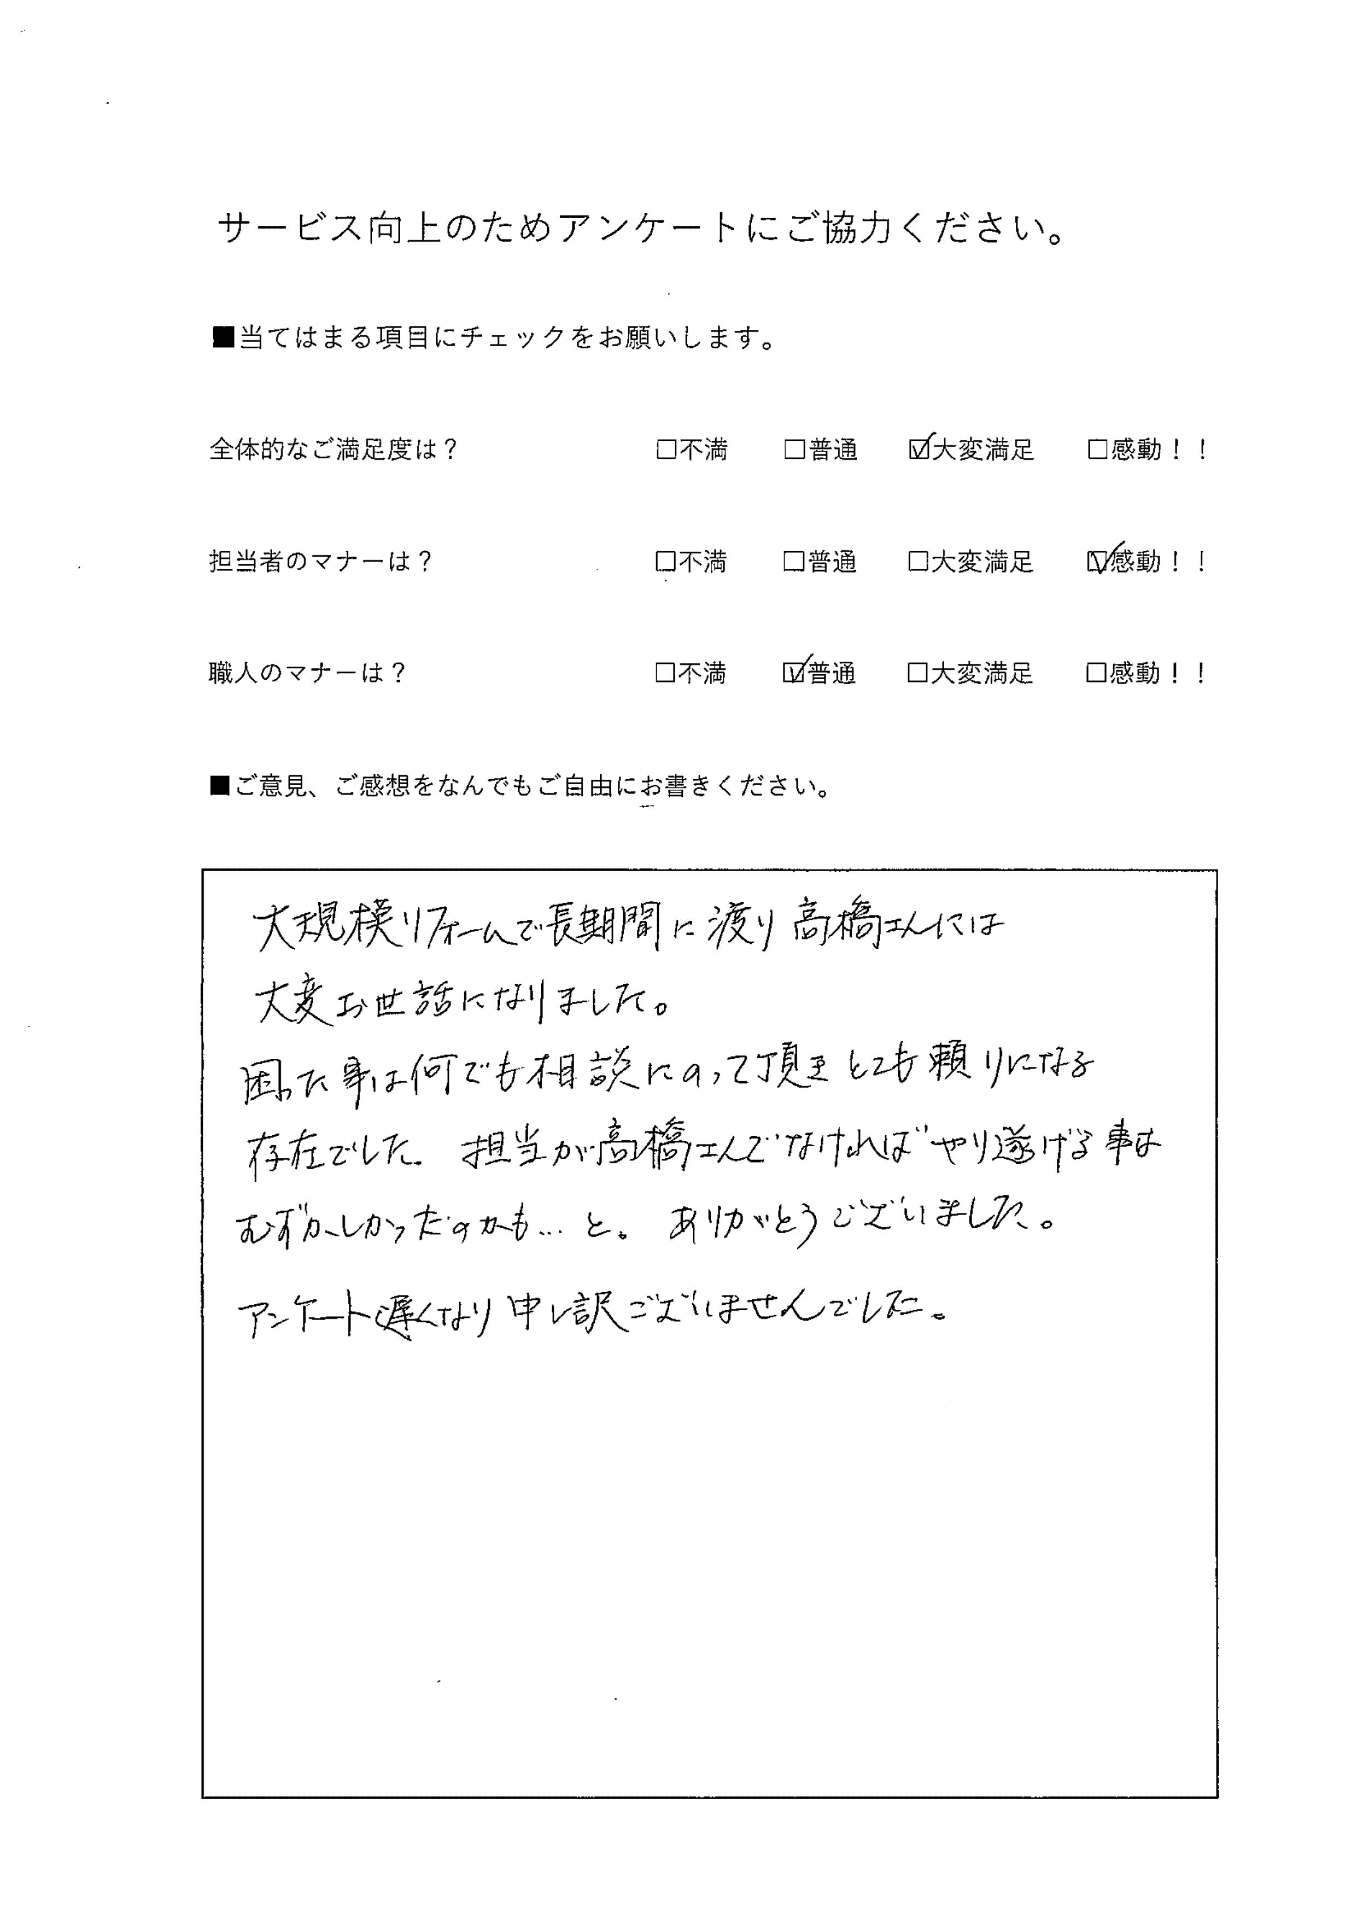 サービス向上のためアンケートにご協力ください。
■当てはまる項目にチェックをお願いします。
全体的なご満足度は？ □不満 □普通 ☑大変満足 □感動！！
担当者のマナーは？ □不満 □普通 □大変満足 ☑感動！！
職人のマナーは？ □不満 ☑普通 □大変満足 □感動！！
■ご意見、ご感想をなんでもご自由にお書きください。
大規模リフォームで長期間に渡り高橋さんには
大変お世話になりました。
困った事は何でも相談にのって頂きとても頼りになる
存在でした。担当が高橋さんでなければやり遂げる事は
むずかしかったのかも…と。ありがとうございました。
アンケート遅くなり申し訳ございませんでした。